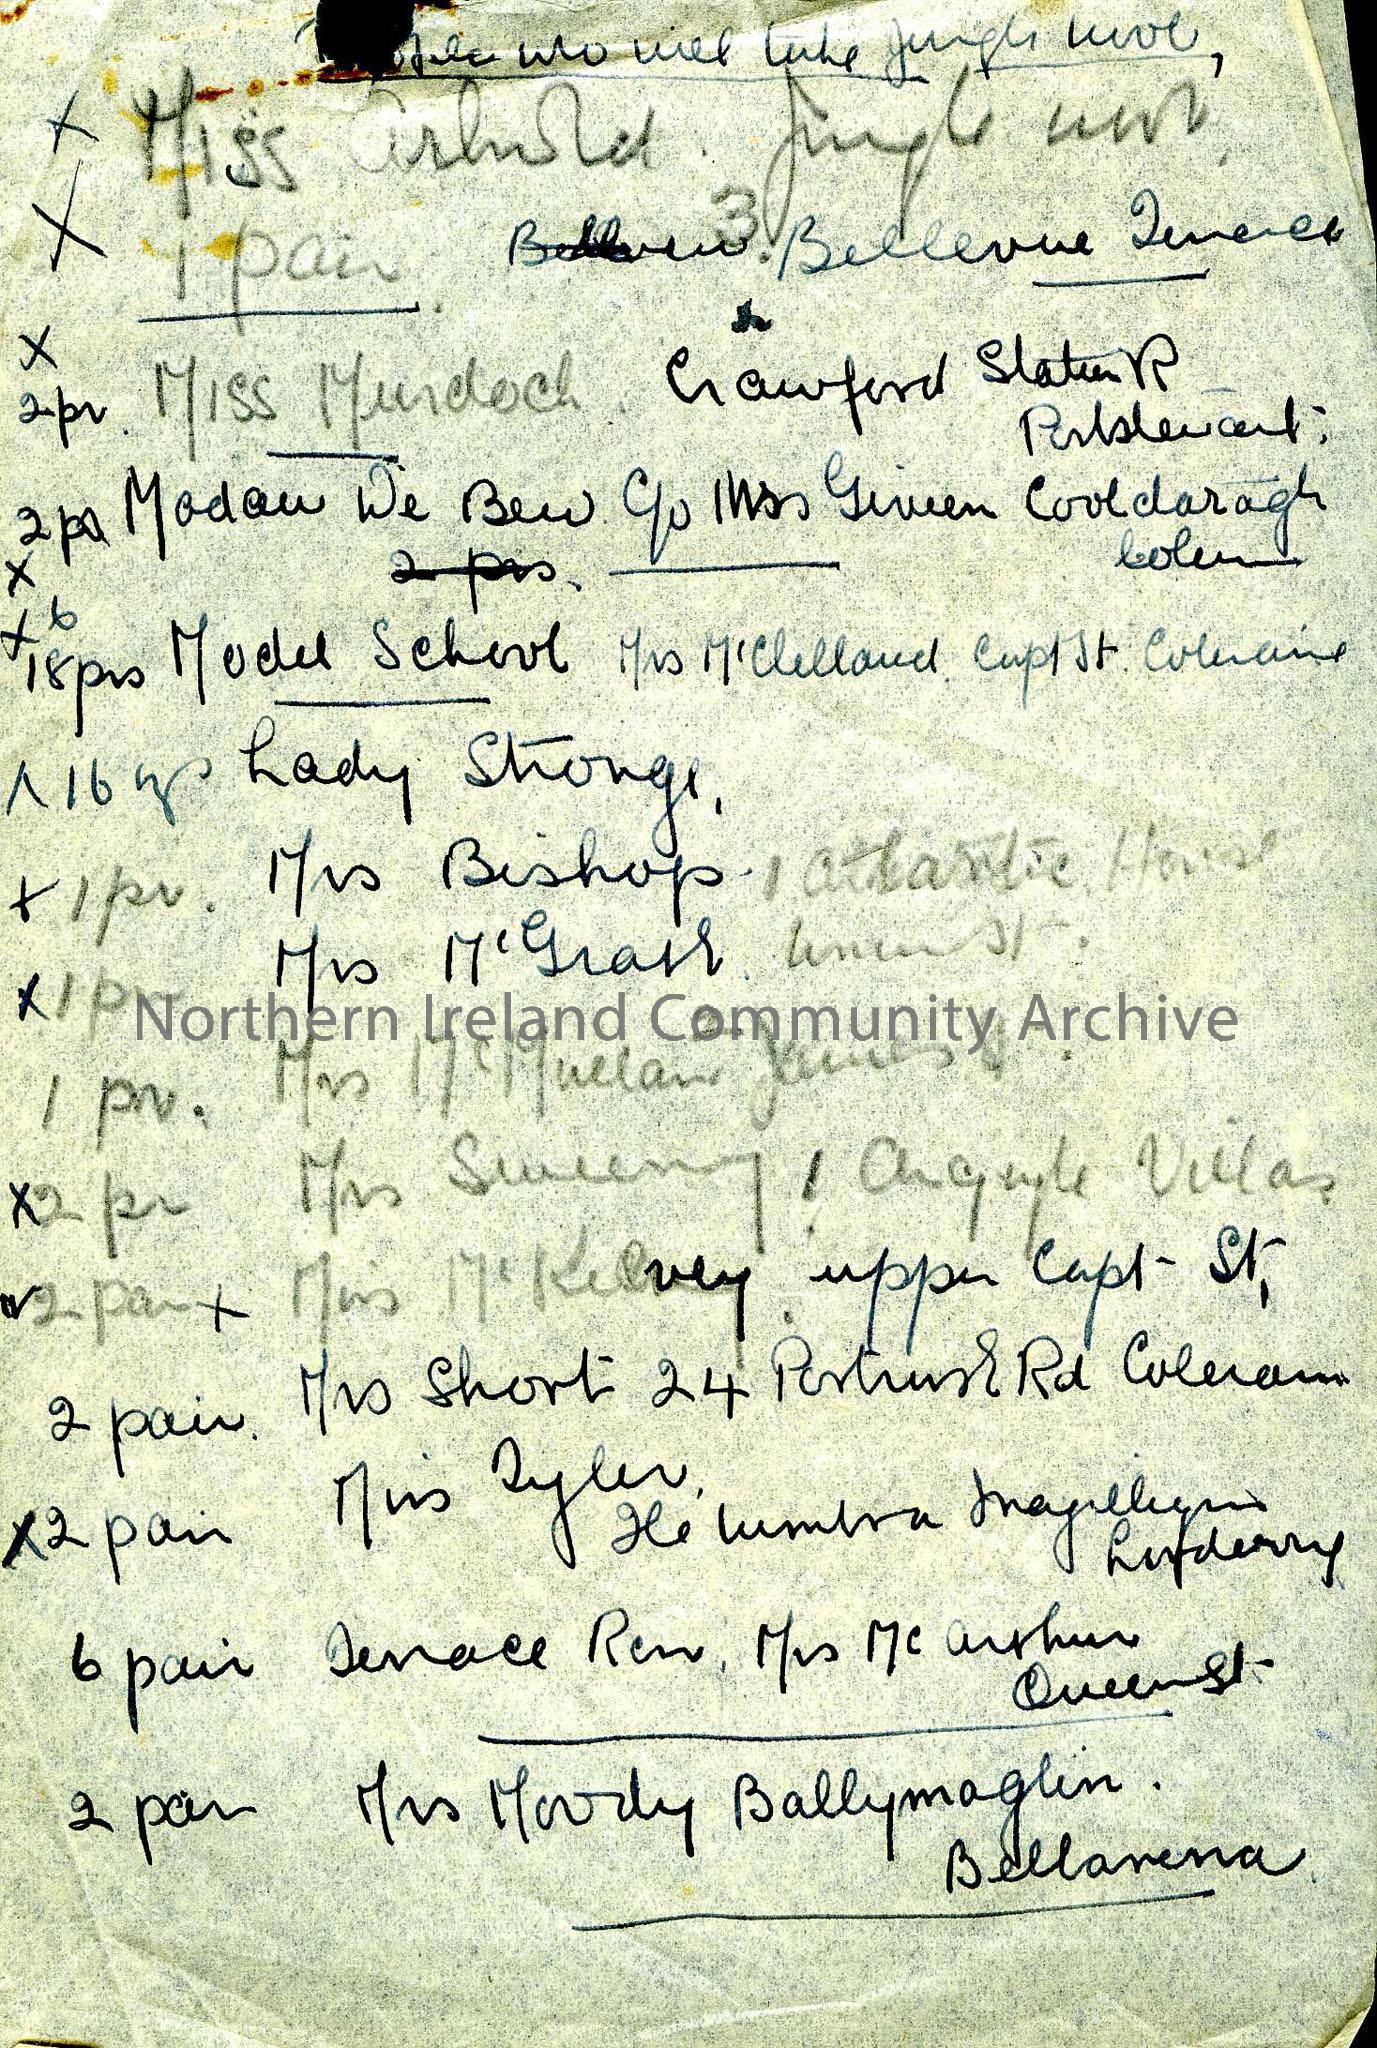 who will take Jungle wool,
x Miss Arnold. Jungle wool.
x 1 pair. 3 Bellevue Terrace
x
2 pr. Miss Murdoch. Crawford Station R
Portstewart.
2 prs Madam De Bew. C/o Mrs Given Cooldaragh
x 2 prs. Colern
x 6
18 prs Model School Mrs McClelland. Capt St. Coleraine
16 Lady Stronge,
x 1 pr. Mrs Bishop. 1 Atlantic House
x 1 pr Mrs McGrath. Union St.
Northern Ireland Community Archive
1 pr. Mrs McMullan James St.
x 2 pr Mrs Sweeny 1 Argyle Villas
2 pair x Miss McKelvey. upper Capt St,
2 pair. Mrs Short 24 Portrush Rd Coleraine
x 2 pair Miss Tyler,
Magilligan
Londonderry
6 pair Terrace Row, Mrs McArthur
Queen St.
2 pair Mrs Moody Ballymaglin.
Bellarena.